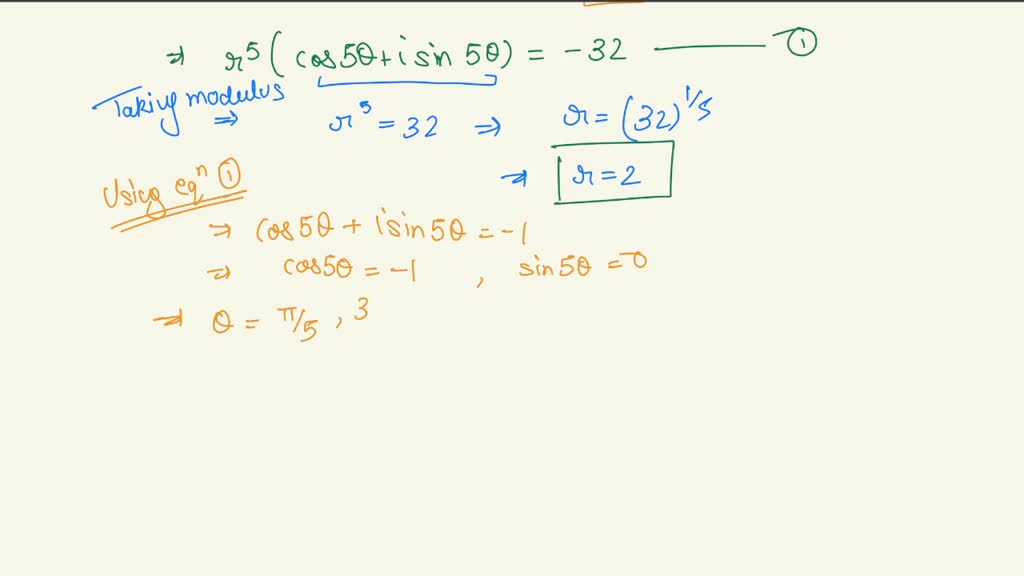 ⇒ r⁵ (cos5θ + i sin 5θ) = -32 —— ①
Taking modulus
⇒ r⁵ = 32 ⇒ r = (32)^1/5
⇒ r = 2
Using eqⁿ ①
⇒ cos5θ + i sin5θ = -1
⇒ cos5θ = -1 , sin5θ = 0
⇒ θ = π/5 , 3